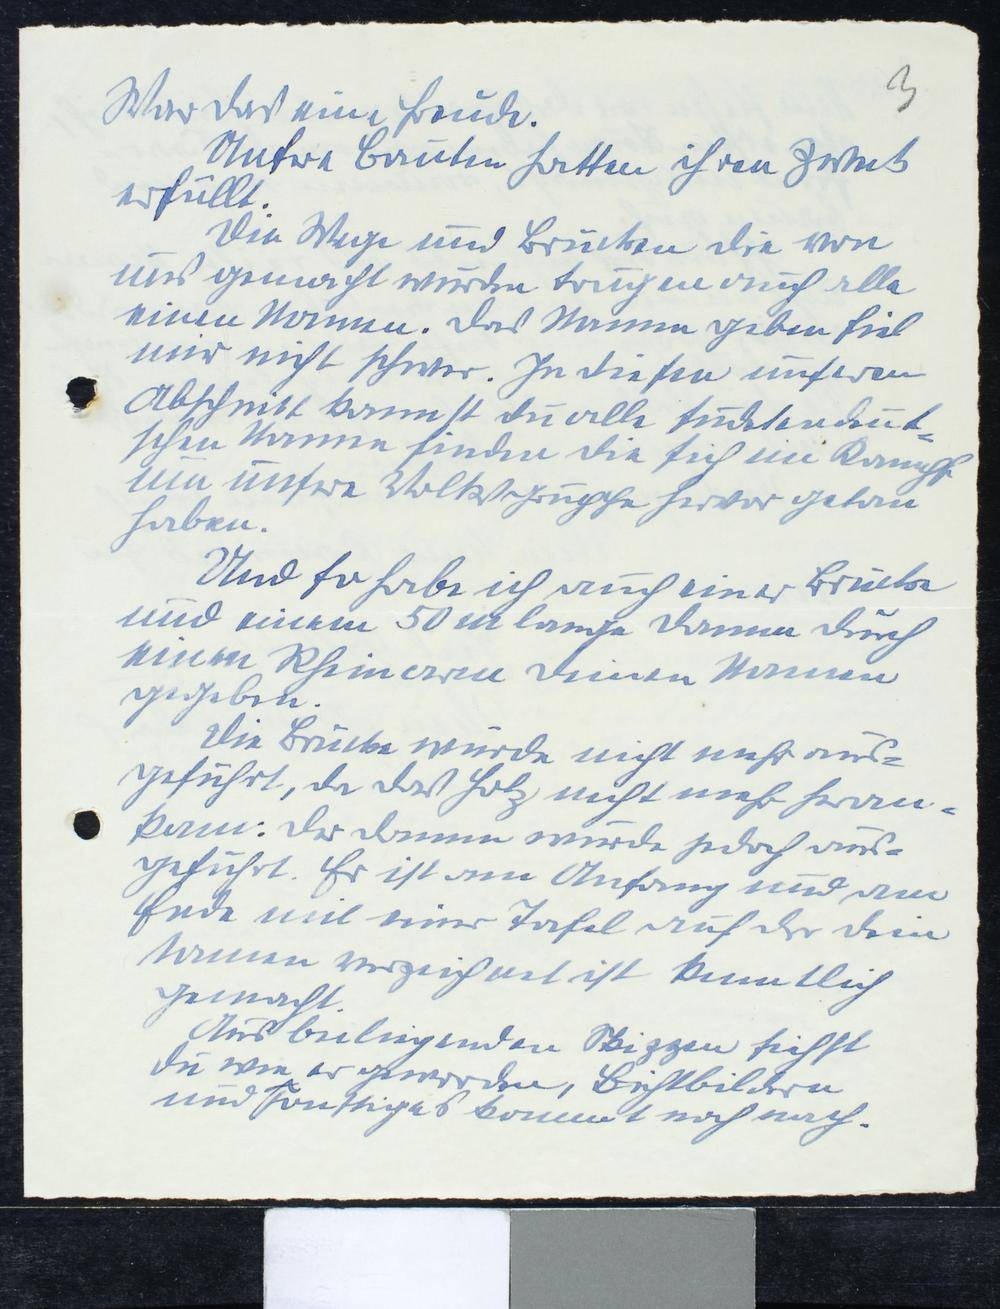 3
War das eine Freude.
Unsre Bauten hatten ihren Zweck
erfüllt.
Die Wege und Brücken die von
uns gemacht wurden trugen auch alle
einen Namen. Das Namen geben fiel
mir nicht schwer. In diesen unseren
Abschnitt kannst du alle sudetendeut-
schen Namen finden die sich im Kampf
um unsre Volksgruppe hervor getan
haben.
Und so habe ich auch einer Brücke
und einem 50 m lange Damm durch
einen Rheinarm deinen Namen
gegeben.
Die Brücke wurde nicht mehr aus-
geführt, da das Holz nicht mehr heran-
kam. Der Damm wurde jedoch aus-
geführt. Er ist am Anfang und am
Ende mit einer Tafel auf der dein
Namen verzeichnet ist kenntlich
gemacht.
Aus beiliegenden Skizzen siehst
du wie er geworden, Lichtbildern
und sonstiges kommt noch nach.